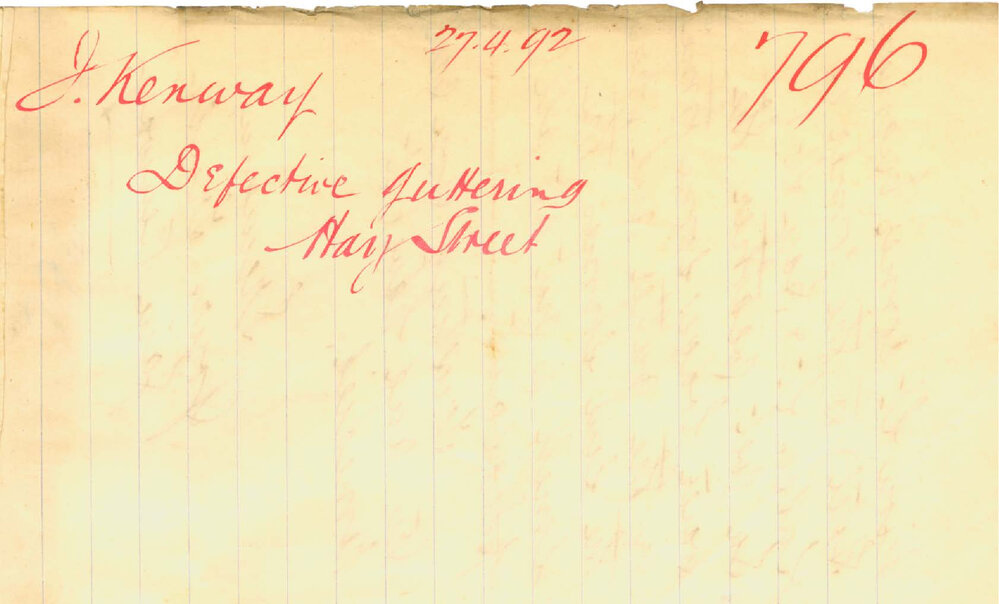 27.4.92
796
J. Kenway
Defective guttering
Hay Street